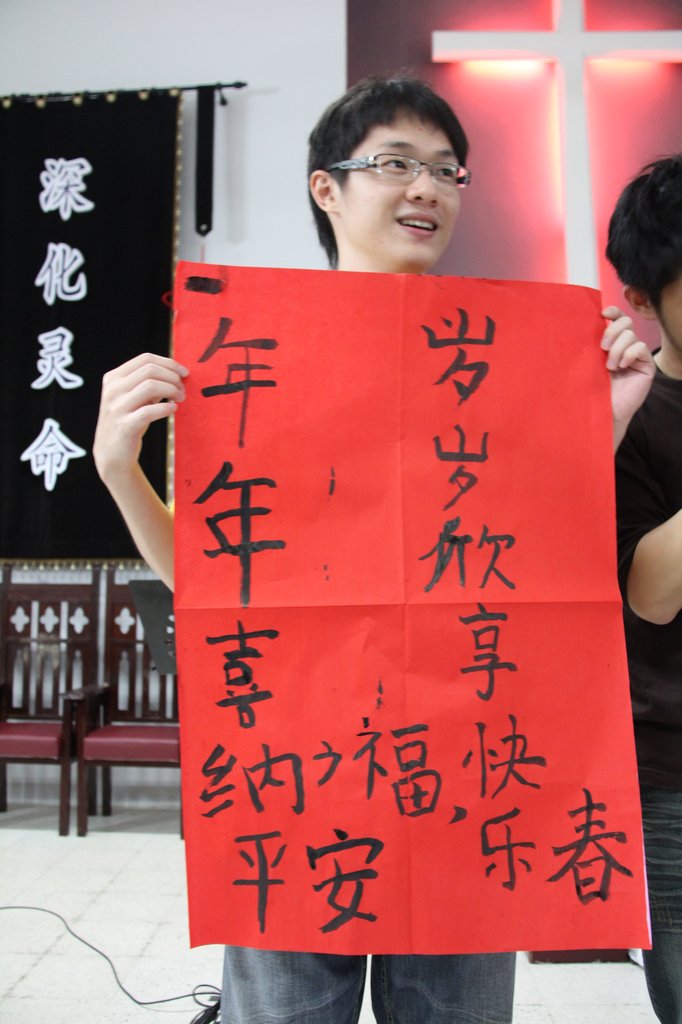 深化灵命
年年喜纳平安福,
岁岁欣享快乐春